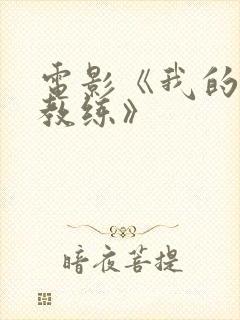 電影《我的
教练》
暗夜菩提